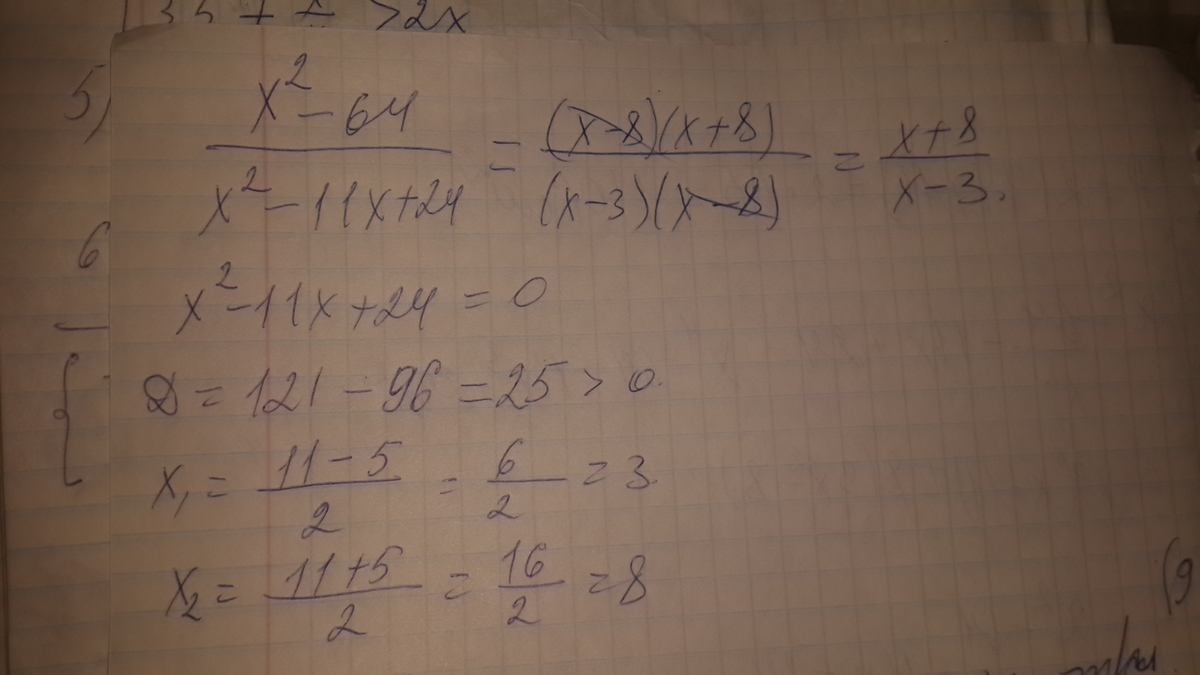 > 2x
5)
x² - 64 / x² - 11x + 24 = (x - 8)(x + 8) / (x - 3)(x - 8) = x + 8 / x - 3.
6
x² - 11x + 24 = 0
D = 121 - 96 = 25 > 0.
x₁ = 11 - 5 / 2 = 6 / 2 = 3.
x₂ = 11 + 5 / 2 = 16 / 2 = 8
(9